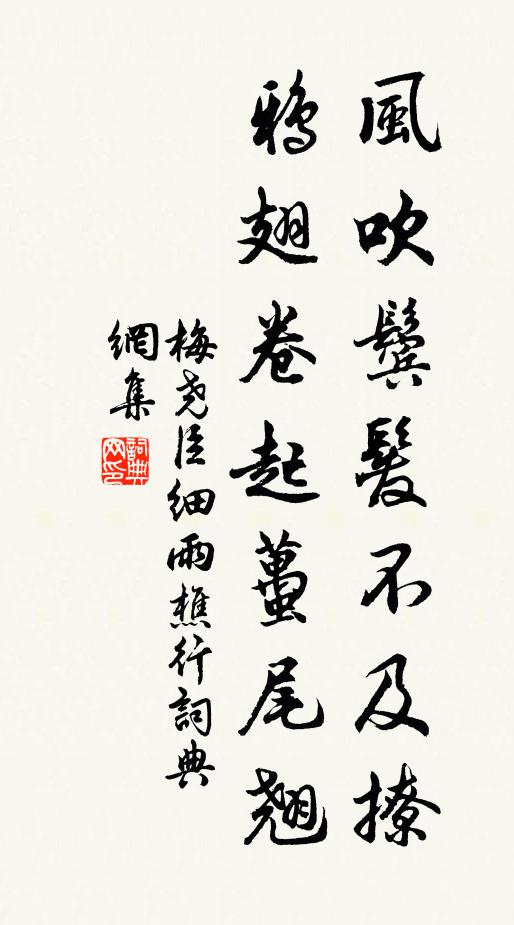 風吹鬢髮不及撩
鴉翅卷起蠆尾翹
梅尧臣细雨樵行詞典
網集
詞典网印